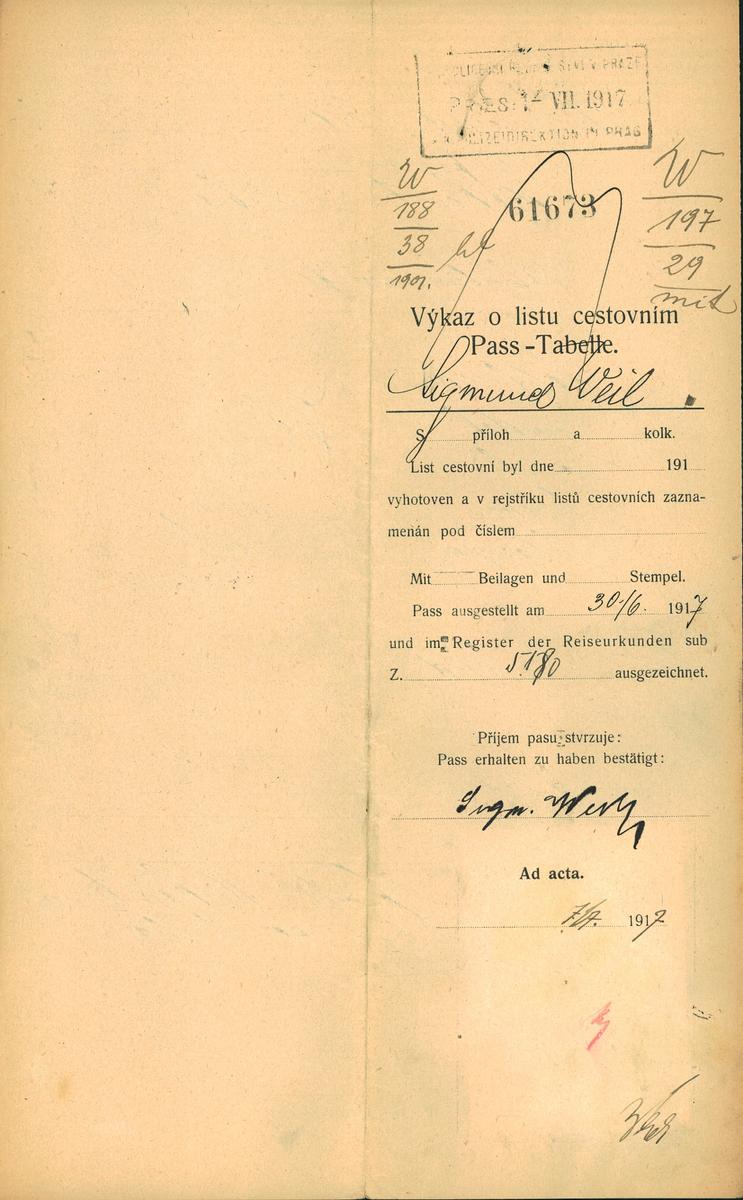 PRAES: 12 VII. 1917
POLIZEIDIREKTION IN PRAG
W
188
38
1901.
61673
W
197
29
mit
Výkaz o listu cestovním
Pass-Tabelle.
Sigmund Weil
S příloh a kolk.
List cestovní byl dne 191
vyhotoven a v rejstříku listů cestovních zazna-
menán pod číslem
Mit Beilagen und Stempel.
Pass ausgestellt am 30/6. 1917
und im Register der Reiseurkunden sub
Z. 5180 ausgezeichnet.
Příjem pasu stvrzuje:
Pass erhalten zu haben bestätigt:
Sigm. Weil
Ad acta.
7/7. 1917